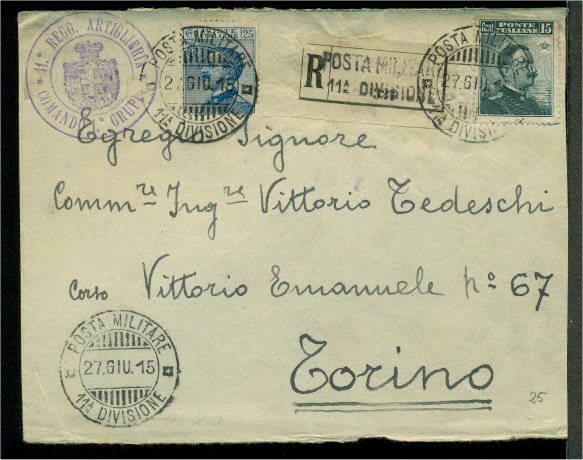 11° REGG. ARTIGLIERIA
COMANDO GRUPPO
POSTA MILITARE
27.GIU.15
11ª DIVISIONE
25
R
POSTA MILITARE
11ª DIVISIONE
POSTA MILITARE
27.GIU.15
11ª DIVISIONE
POSTE ITALIANE 15
Egregio Signore
Comm.re Ing.re Vittorio Tedeschi
Corso Vittorio Emanuele n° 67
Torino
POSTA MILITARE
27.GIU.15
11ª DIVISIONE
25